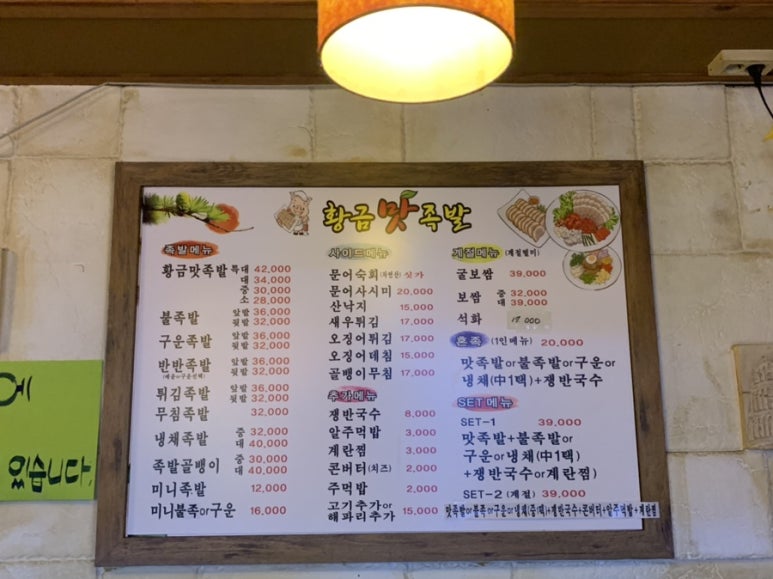 황금맛족발
족발메뉴
황금맛족발 특대 42,000
대 34,000
중 30,000
소 28,000
불족발 앞발 36,000
뒷발 32,000
구운족발 앞발 36,000
뒷발 32,000
반반족발 앞발 36,000
뒷발 32,000
튀김족발 앞발 36,000
뒷발 32,000
무침족발 32,000
냉채족발 중 32,000
대 40,000
족발골뱅이 중 30,000
대 40,000
미니족발 12,000
미니불족or구운 16,000
사이드메뉴
문어숙회 싯가
문어사시미 20,000
산낙지 15,000
새우튀김 17,000
오징어튀김 17,000
오징어데침 15,000
골뱅이무침 17,000
추가메뉴
쟁반국수 8,000
알주먹밥 3,000
계란찜 3,000
콘버터(치즈) 2,000
주먹밥 2,000
고기추가or
해파리추가 15,000
계절메뉴 (계절별미)
굴보쌈 39,000
보쌈 중 32,000
대 39,000
석화 17,000
혼족 (1인메뉴) 20,000
맛족발or불족발or구운or
냉채(中1택)+쟁반국수
SET메뉴
SET-1 39,000
맛족발+불족발or
구운or냉채(中1택)
+쟁반국수or계란찜)
SET-2 (계절) 39,000
맛족발or불족or구운or냉채(중1택)+쟁반국수+콘버터+알주먹밥+계란찜
에
있습니다.